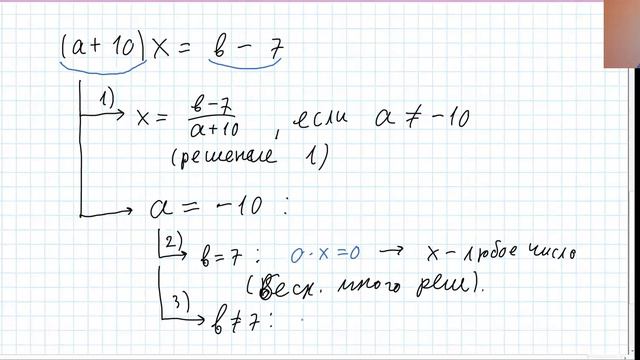 (a + 10) x = в - 7
1) x = в-7 / a+10 , если a ≠ -10
(решение 1)
a = -10 :
2) в = 7 : 0·x=0 → x - любое число
(Беск. много реш).
3) в ≠ 7 :